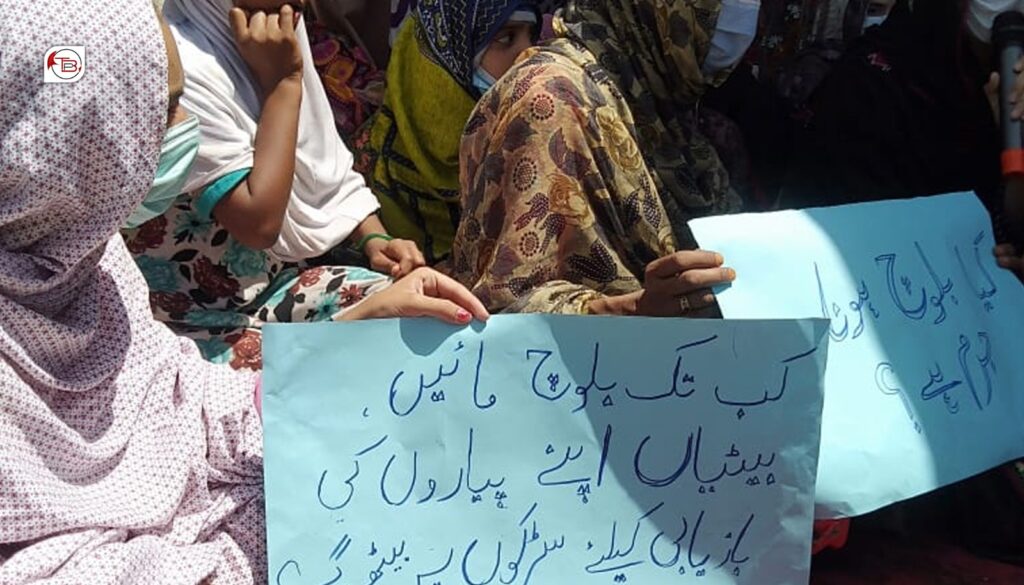 کب تک بلوچ مائیں،
بیٹیاں اپنے پیاروں کی
بازیابی کیلئے سڑکوں پر بیٹھو گے؟
کیا بلوچ ہونا
جرم ہے؟
TB